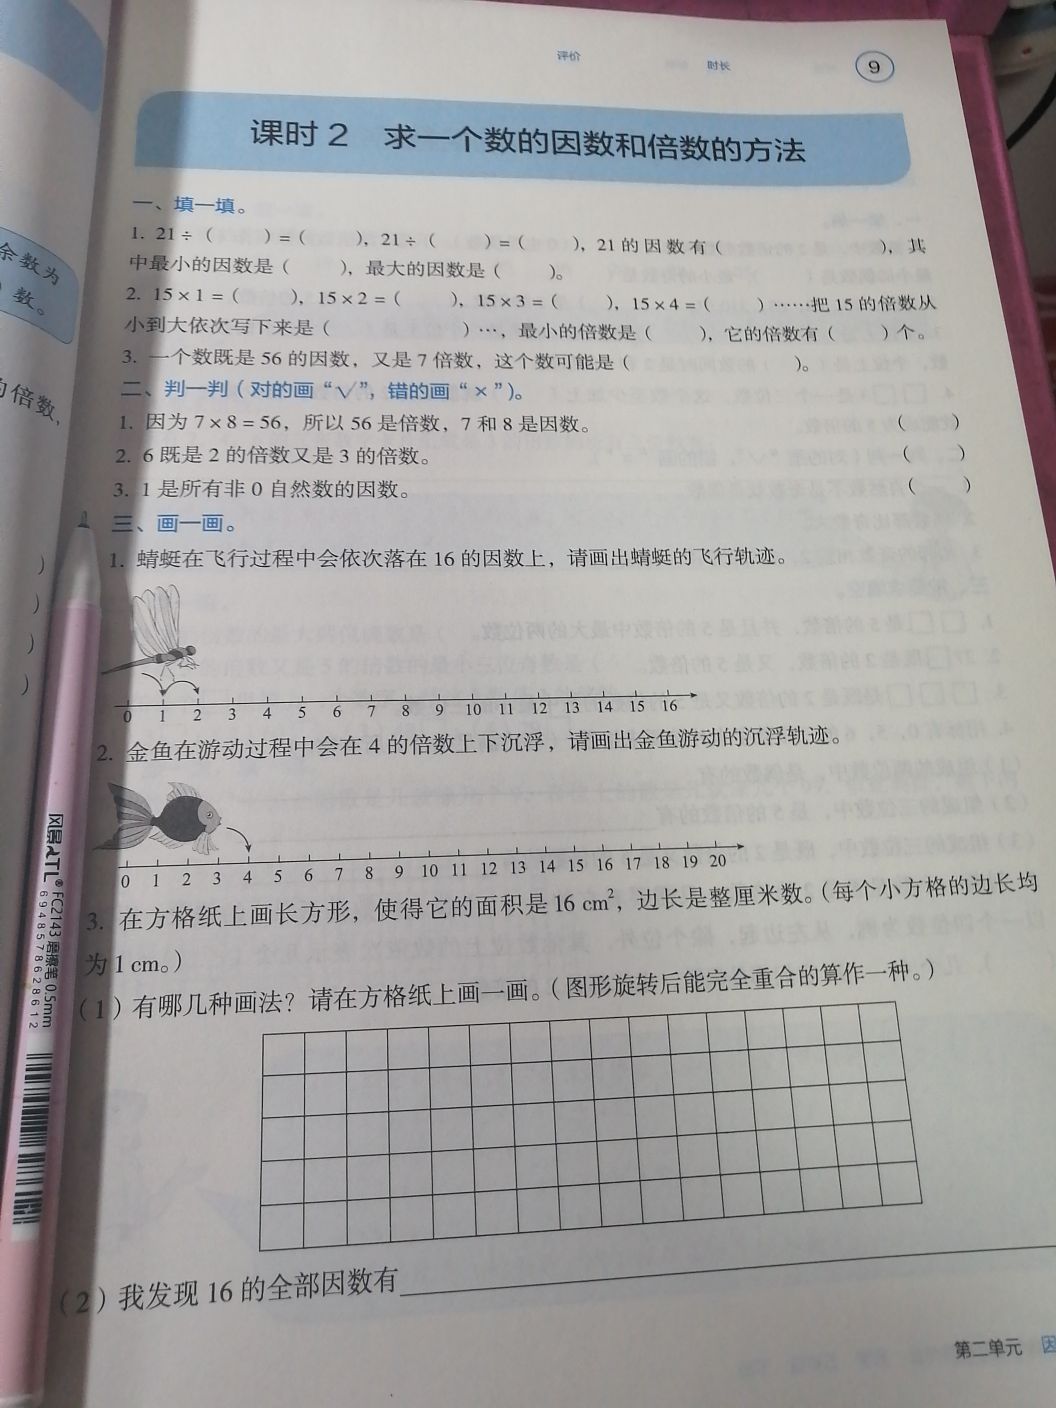 评价 时长 9
课时2 求一个数的因数和倍数的方法
一、填一填。
1. 21÷( )=( ), 21÷( )=( ), 21的因数有( ), 其
中最小的因数是( ), 最大的因数是( )。
2. 15×1=( ), 15×2=( ), 15×3=( ), 15×4=( )……把15的倍数从
小到大依次写下来是( )…, 最小的倍数是( ), 它的倍数有( )个。
3. 一个数既是56的因数, 又是7倍数, 这个数可能是( )。
二、判一判(对的画“√”, 错的画“×”)。
1. 因为7×8=56, 所以56是倍数, 7和8是因数。 ( )
2. 6既是2的倍数又是3的倍数。 ( )
3. 1是所有非0自然数的因数。 ( )
三、画一画。
1. 蜻蜓在飞行过程中会依次落在16的因数上, 请画出蜻蜓的飞行轨迹。
0 1 2 3 4 5 6 7 8 9 10 11 12 13 14 15 16
2. 金鱼在游动过程中会在4的倍数上下沉浮, 请画出金鱼游动的沉浮轨迹。
0 1 2 3 4 5 6 7 8 9 10 11 12 13 14 15 16 17 18 19 20
3. 在方格纸上画长方形, 使得它的面积是16 cm², 边长是整厘米数。(每个小方格的边长均
为1 cm。)
(1)有哪几种画法? 请在方格纸上画一画。(图形旋转后能完全重合的算作一种。)
(2)我发现16的全部因数有
第二单元 因
余数为
数。
倍数,
)
)
)
)
FC2143 磨擦笔 0.5mm
6948578628612